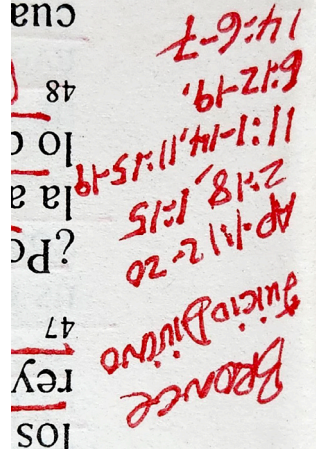 BRONCE
Juicio Divino
AP. 1:12-20
2:18, 1:15
11:1-14, 11:15-19
6:12-19.
14:6-7
los
rey
47
¿Po
la a
lo
48
cua